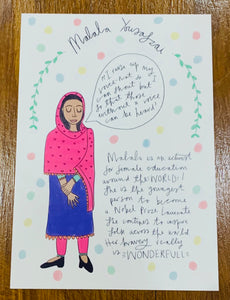 Malala Yousafzai
"I raise up my
voice-not so I
can shout but
so that those
without a voice
can be heard"
Malala is an activist
for female education
around the WORLD!
She is the youngest
person to become
a Nobel Prize Laureate
She continues to inspire
folk across the world
Her bravery really
is #WONDERFULL